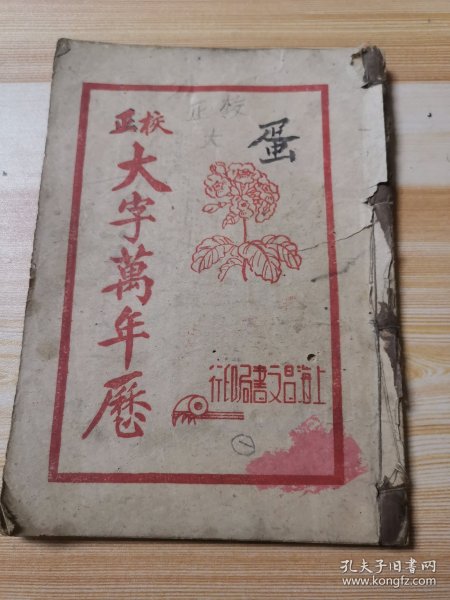 校正
大字萬年歷
校正
大
蛋
上海昌文書局印行
孔夫子旧书网
www.kongfz.com